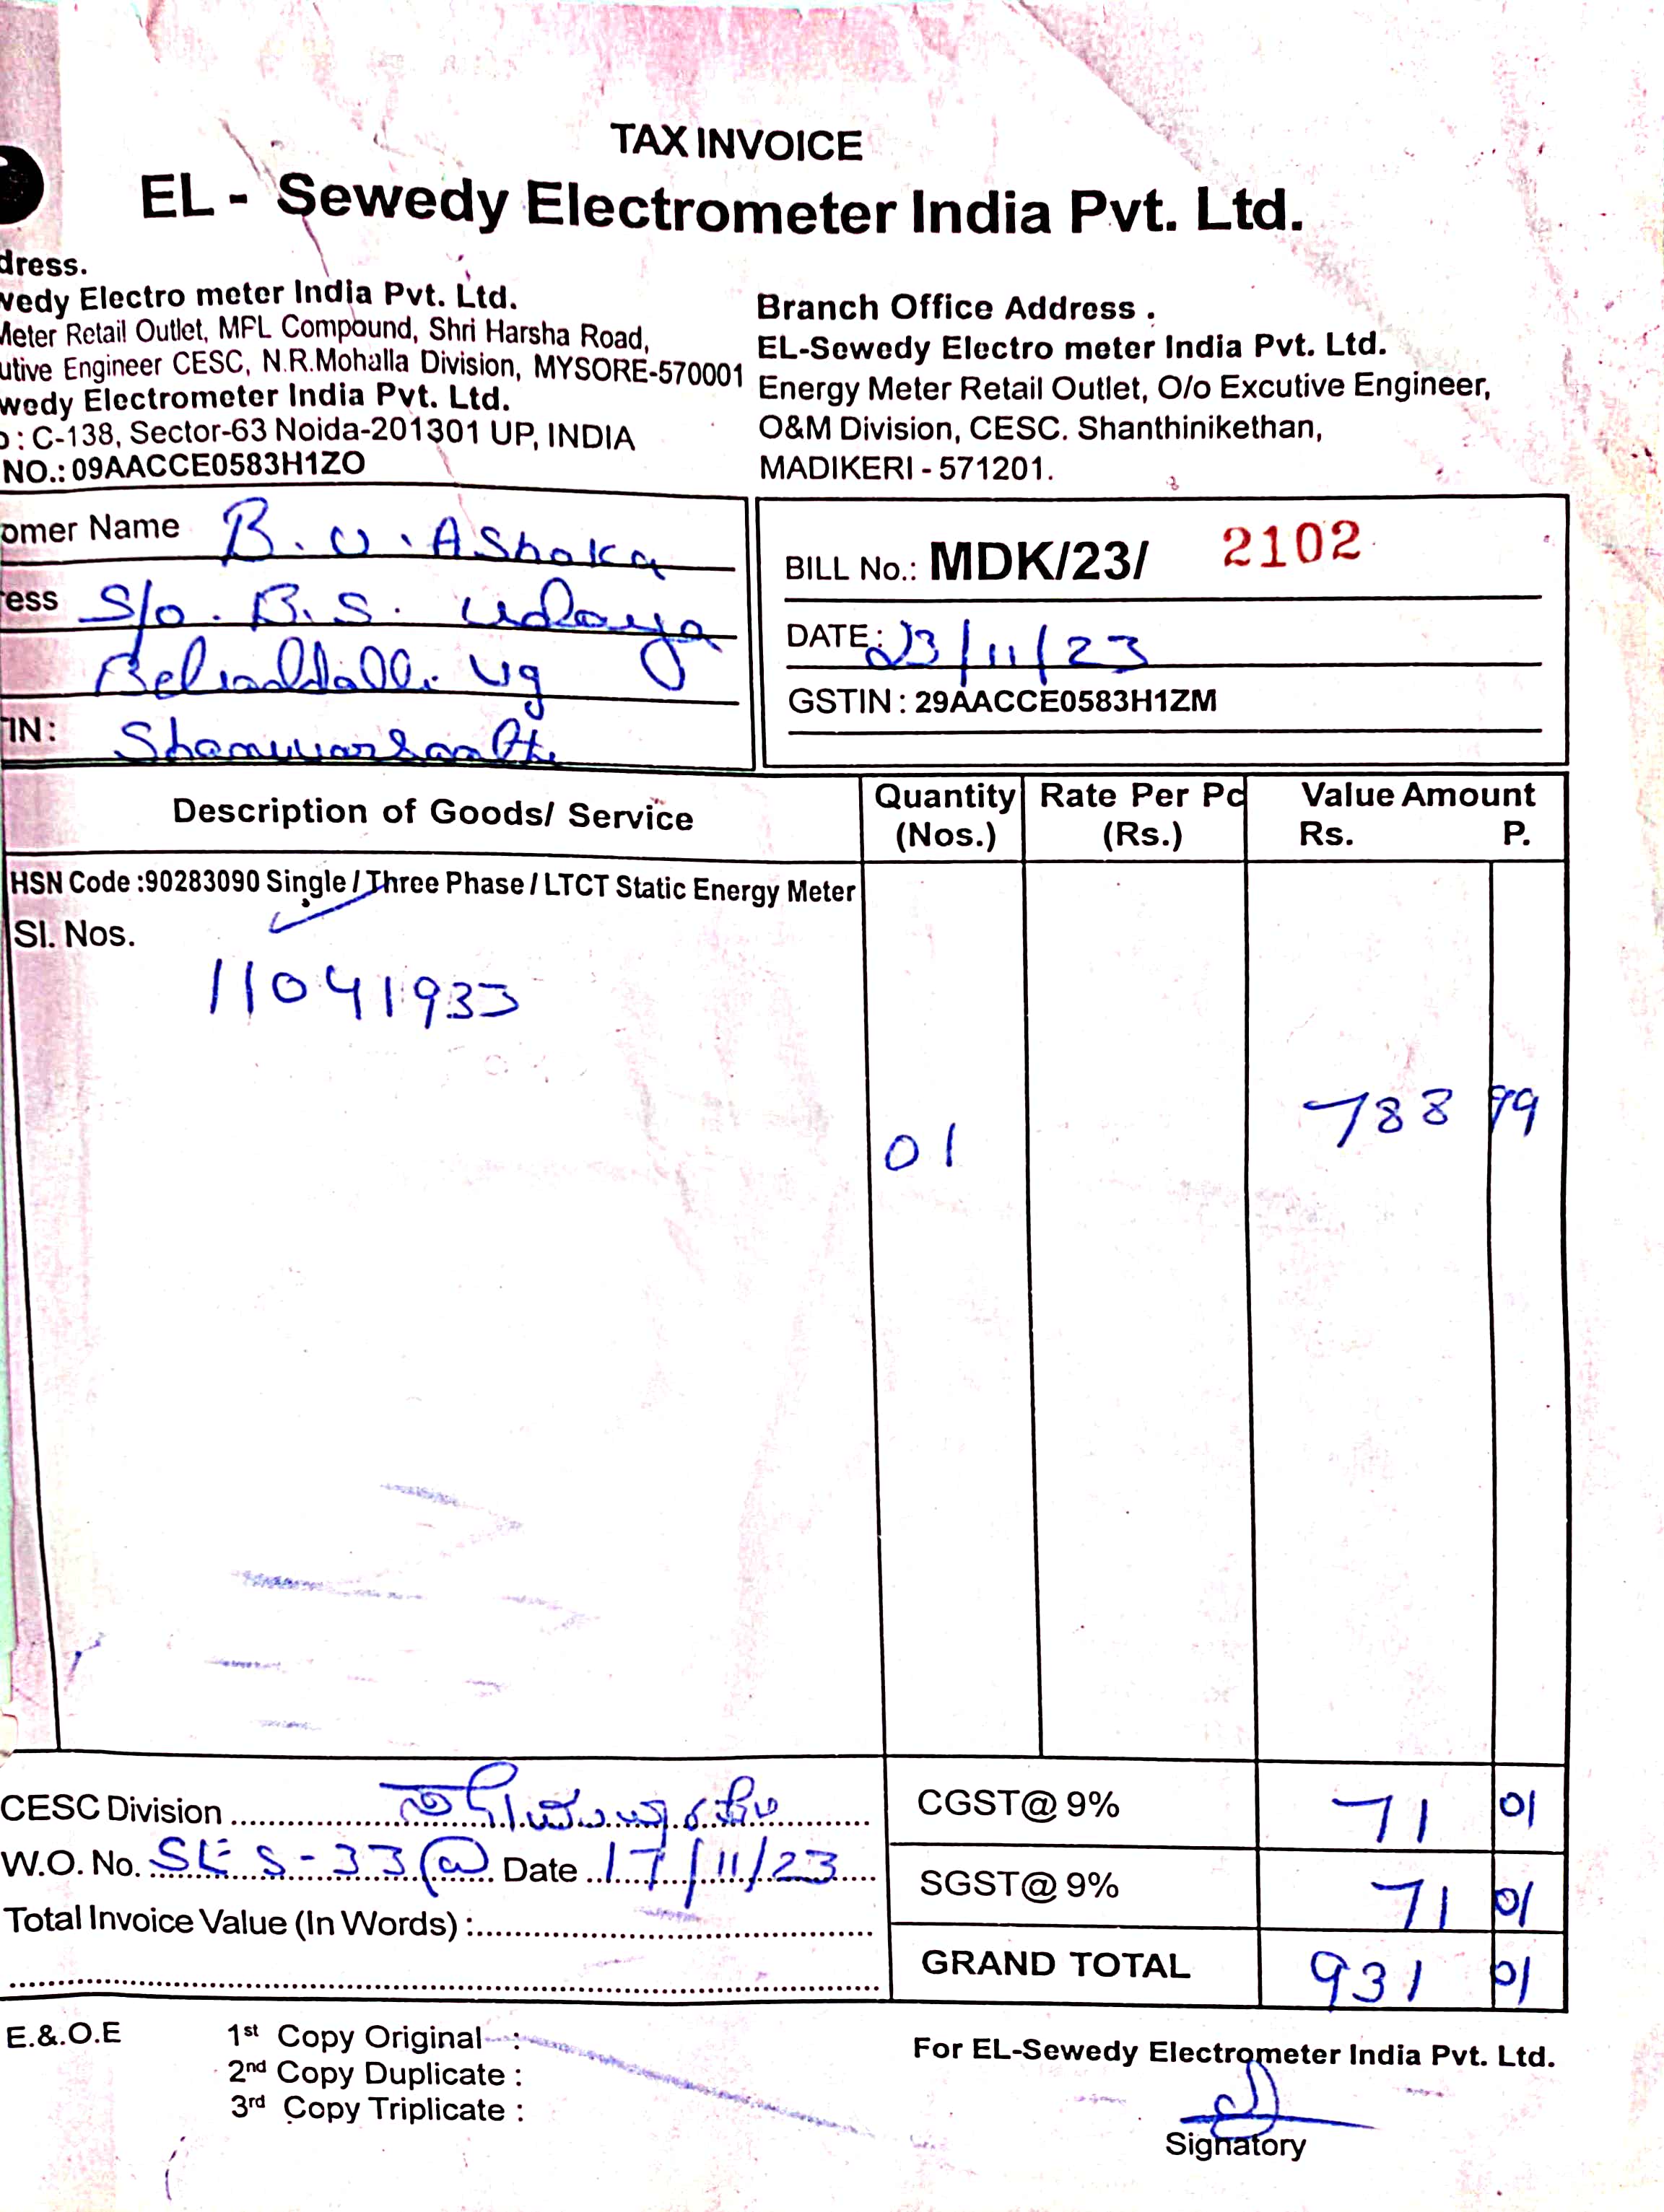 TAX INVOICE
EL - Sewedy Electrometer India Pvt. Ltd.
dress.
wedy Electro meter India Pvt. Ltd.
Meter Retail Outlet, MFL Compound, Shri Harsha Road,
utive Engineer CESC, N.R.Mohalla Division, MYSORE-570001
wedy Electrometer India Pvt. Ltd.
o : C-138, Sector-63 Noida-201301 UP, INDIA
NO.: 09AACCE0583H1ZO
Branch Office Address .
EL-Sewedy Electro meter India Pvt. Ltd.
Energy Meter Retail Outlet, O/o Excutive Engineer,
O&M Division, CESC. Shanthinikethan,
MADIKERI - 571201.
omer Name B. U. Ashoka
ess S/o. B.S. Udaya
Vg
IN:
BILL No.: MDK/23/ 2102
DATE: 23/11/23
GSTIN : 29AACCE0583H1ZM
Description of Goods/ Service Quantity (Nos.) Rate Per Pc (Rs.) Value Amount Rs. P.
HSN Code :90283090 Single / Three Phase / LTCT Static Energy Meter
Sl. Nos.
11041933
01 788 99
CESC Division
W.O. No. Date 17/11/23
Total Invoice Value (In Words) :
CGST@ 9% 71 01
SGST@ 9% 71 01
GRAND TOTAL 931 01
E.&.O.E
1st Copy Original :
2nd Copy Duplicate :
3rd Copy Triplicate :
For EL-Sewedy Electrometer India Pvt. Ltd.
Signatory